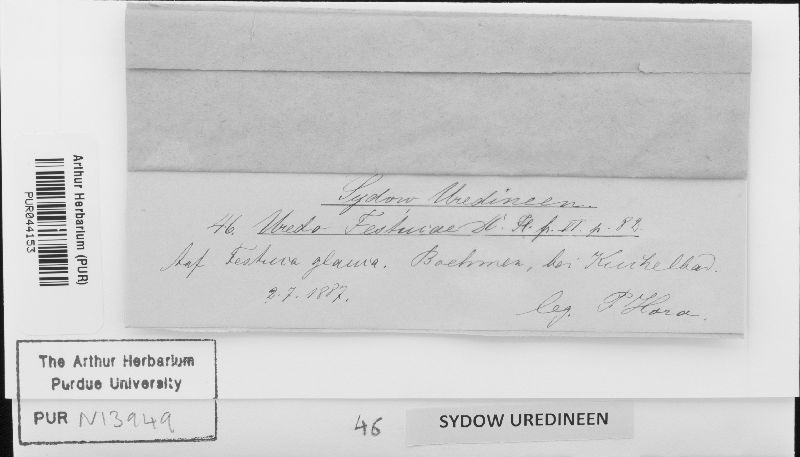 Sydow Uredineen.
46. Uredo Festucae
Auf Festuca glauca. Boehmen, bei Kuchelbad.
2.7.1887.
leg. P Hora.
Arthur Herbarium (PUR)
PUR044153
The Arthur Herbarium
Purdue University
PUR N13949
46
SYDOW UREDINEEN